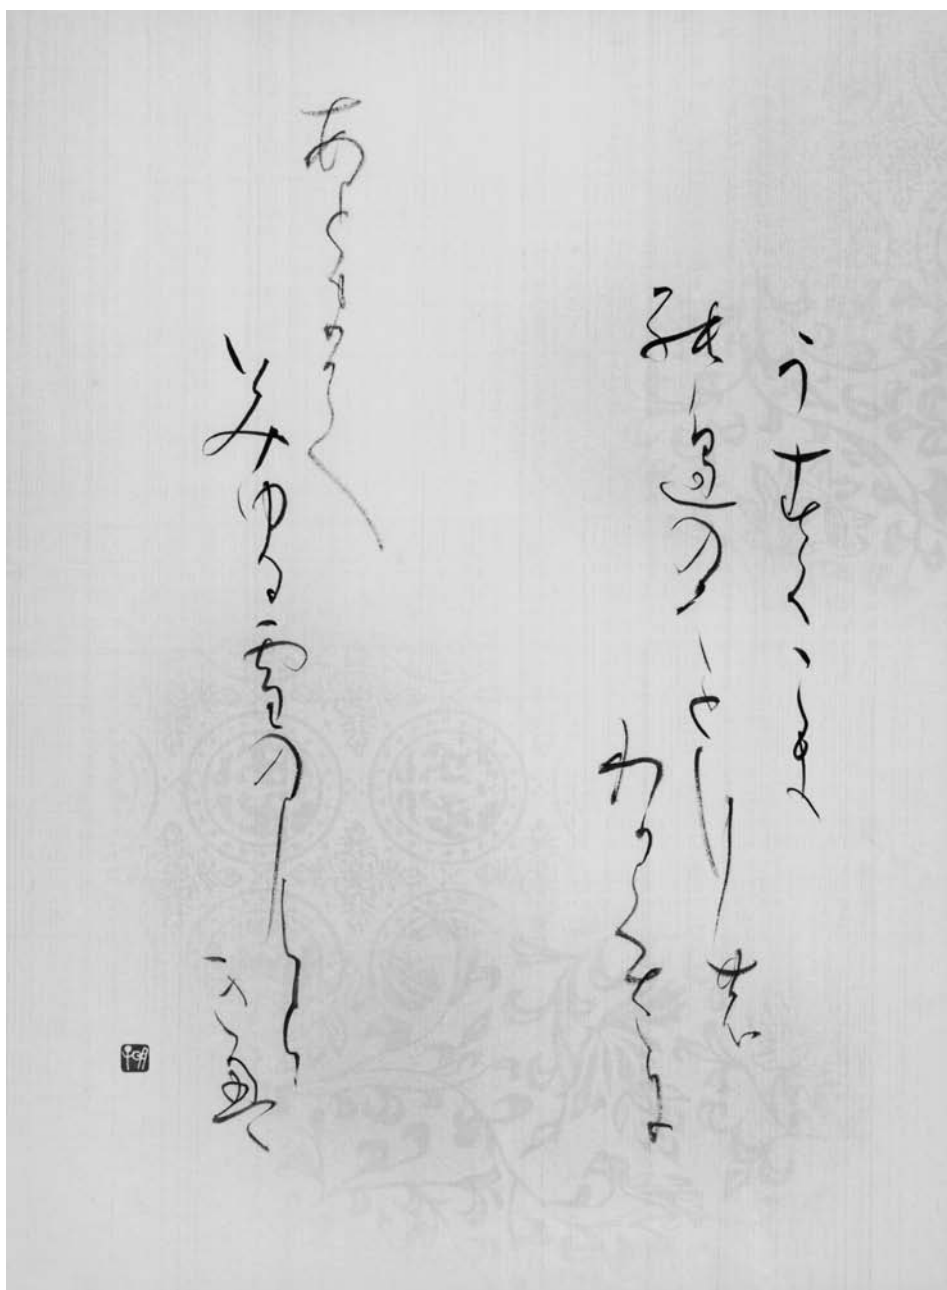 うすくこき
野邊のみとりの
わかくさに
あとまて
みゆる雪のむら
きえ